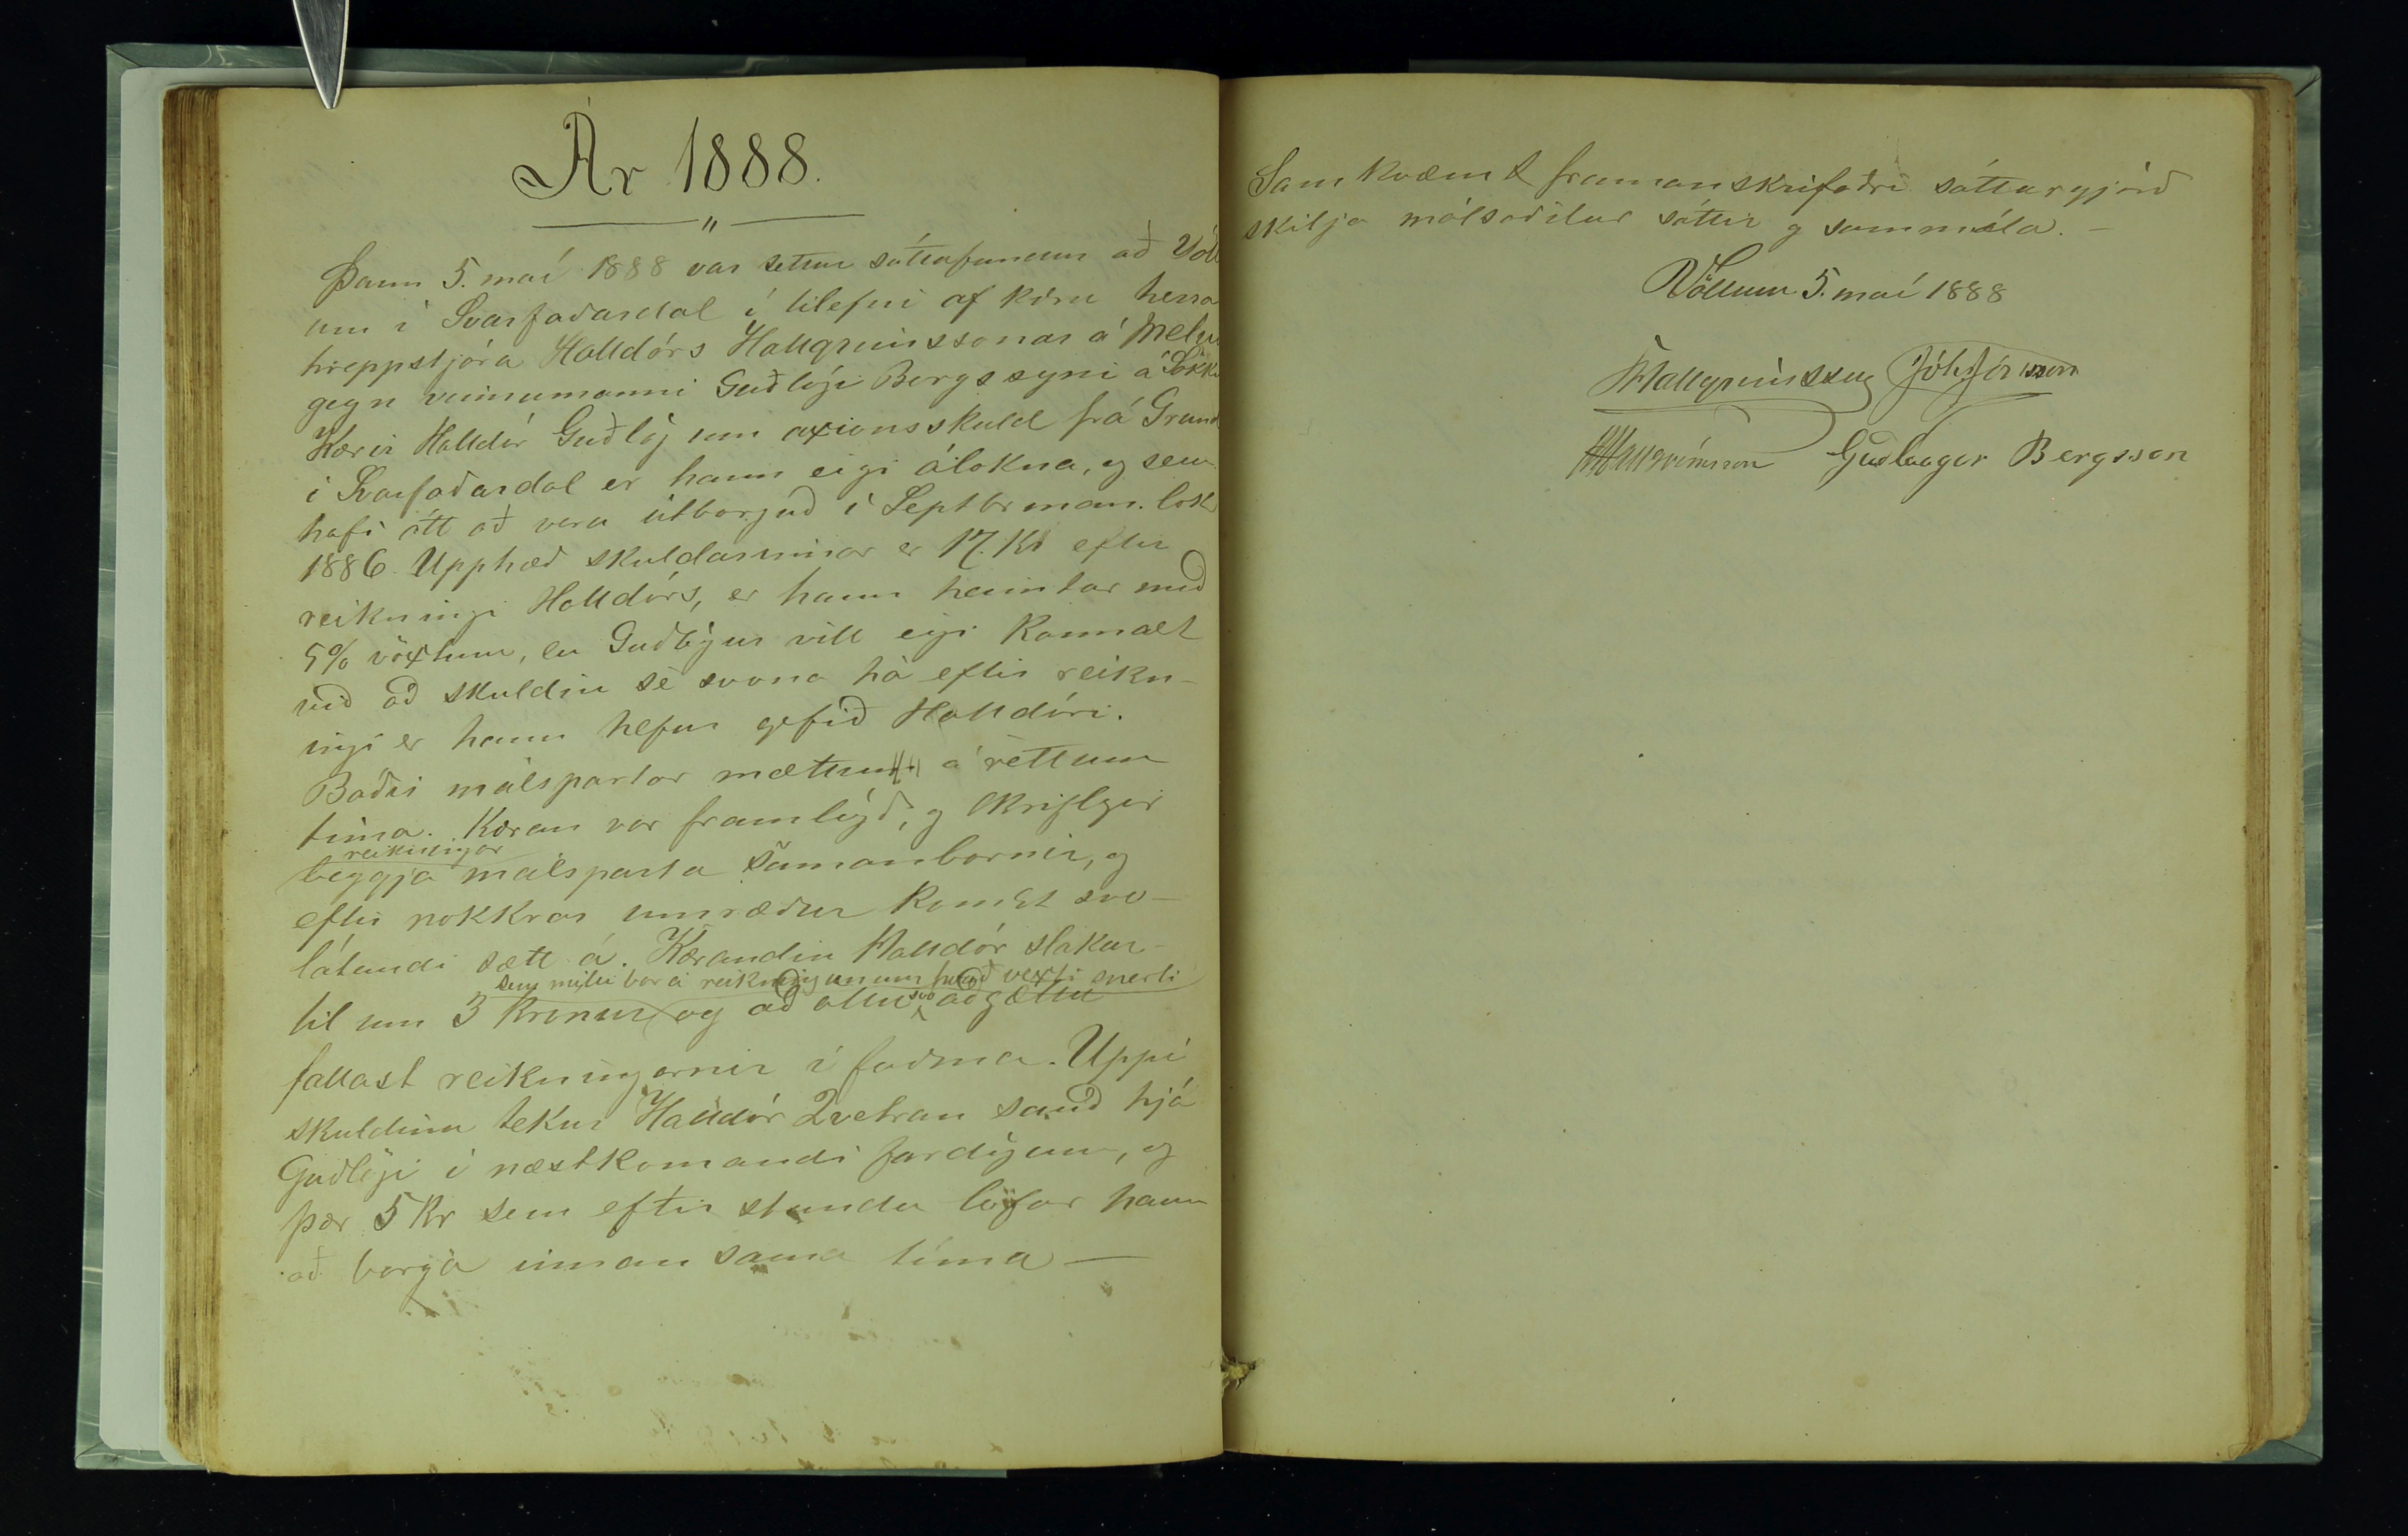 Ár 1888.
Þann 5. maí 1888 var settur sáttafundur að Völl
um í Svarfaðardal í tilefni af kæru herra
hreppstjóra Halldórs Hallgrímssonar á Melu
gegn vinnumanni Guðlögi Bergssyni á Sökku
Kærir Halldór Guðlög um axionsskuld frá Grund
í Svarfaðardal er hann eigi álokna, og sem
hafi átt að vera útborguð í Septbrmán. lok
1886. Upphæð skuldarinnar er 17. Kr eftir
reikningi Halldórs, er hann heimtar með
5% vöxtum, en Guðlögur vill eigi Kannast
við að skuldin sè svona há eftir reikn-
ingi er hann hefur gefið Halldóri.
Báðir málspartar mættu á rèttum
tíma. Kæran var framlögð, og skriflegir
reikningar
beggja málsparta sámanbornir, og
eftir nokkrar umræður komst svo-
látandi sætt á. Kærandin Halldór slakar
sem milli bar á reikningunum hvað vexti snerti
til um 3 Krónur og að öllu svo aðgættu
fallast reikningarnir í faðma. Uppí
skuldina tekur Halldór 2vetran sauð hjá
Guðlögi í næstkomandi fardögum, og
þær 5 Kr sem eftir standa lofar hann
að borga innan sama tíma —
Samkvæmt framanskrifaðri sáttargjörð
skilja málsaðilar sáttir og sammála. —
Völlum 5. maí 1888
Hallgrímsson Jóh Jónsson
HHallgrímsson Guðlaugur Bergsson